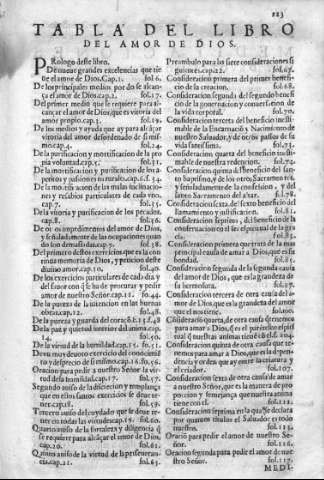 223
TABLA DEL LIBRO
DEL AMOR DE DIOS.
PRologo deste libro.
De nueue grandes excelencias que tie
ne el amor de Dios. Cap.1. fol.6.
De los principales medios por do se alcan-
ça el amor de Dios. cap.2. fol.15.
Del primer medio que se requiere para al-
cançar el amor de Dios, que es vitoria del
amor proprio. cap.3.
De los medios y ayuda que ay para alcãçar
vitoria del amor desordenado de si mis-
mo. cap.4. fol.24.
De la purificacion y mortificacion de la pro
pia voluntad. cap.5. fol.31.
De la mortificacion y purificacion de los a-
petitos y passiones naturales. cap.6. f.34.
De la mortificacion de las malas inclinacio-
nes y resabios particulares de cada vno.
cap.7.
De la vitoria y purificacion de los peccados.
cap.8.
De impedimentos del amor de Dios,
y señaladamente de las ocupaciones quan
do son demasiadas. cap.9. fol.38.
Del primero destos exercicios, que es la con
tinua memoria de Dios, y aficion
diuino amor. cap.10. fol.40.
De los exercicios particulares de cada dia y
del que se ha de procurar y pedir
amor de nuestro Señor. cap.11. fo.44.
De la pureza de la intencion en las buenas
obras. cap.12. fol.48.
De la pureza y guarda del coraçõ. c.13. f.
De la paz y quietud interior del anima. cap.
14.
De la virtud de la humildad. cap.15. fo.52.
De vn muy deuoto exercicio del conocimiẽ
to y desprecio de si mismo. cap.16. fo.56.
Oracion para pedir a nuestro Señor la vir-
tud de la humildad. cap.17. fol.57.
Segundo auiso de la discrecion y templança
que en estos santos exercicios se deue te-
ner. cap.18. fol.
Tercero auiso del cuydado que se deue te-
ner en todas las virtudes. cap.19. fol.60.
Quarto auiso de la fortaleza y diligencia q̃
se requiere para alcançar el amor de Dios.
cap.20. fol.62.
Quinto auiso de la virtud de la perseueran-
cia. cap.21. fol.65.
Preambulo para las siete consideraciones si
guientes. cap.22. fol.67.
Consideracion primera del primer benefi-
cio de la creacion. fol.68.
Consideracion segunda del segundo benefi
cio de la gouernacion y conseruacion de
la vida corporal. fol.70.
Consideracion tercera del beneficio inesti-
mable de la Encarnacion y Nacimiento de
nuestro Saluador, y de otros passos de su
vida santissima. fol.73.
Consideracion quarta del beneficio inesti-
mable de nuestra redencion. fol.74.
Consideracion quinta del beneficio del san-
to baptismo, y de los otros Sacramentos,
y señaladamente de la confession, y del
santo Sacramento del altar. fol.78.
Consideracion sexta, del sexto beneficio del
llamamiento y justificacion. fol.81.
Consideracion septima, del beneficio de la
conseruacion en el ser espiritual de la gra-
cia. fol.83.
Consideracion primera que trata de la mas
principal causa de amar a Dios, que es su
bondad. fol.85.
Consideracion segunda de la segunda causa
del amor de Dios, que es la grandeza de
su hermosura. fol.87.
Consideracion tercera de otra causa del a-
mor de Dios, que es la grandeza del amor
que el nos tiene. fol.90.
Consideraciõ quarta, de otra causa q̃ tenemos
para amar a Dios, q̃ es el parẽtesco espiri
tual q̃ nuestras animas tienẽ cõ el. fo.104.
Consideracion quinta de otra causa que te-
nemos para amar a Dios, que es la depen-
dencia y orden que ay entre la criatura y
el criador. fol.107.
Consideracion sexta de otra causa de amar
a nuestro Señor, que es la manera de pro-
porcion y semejança que nuestra anima
tiene con el. fol.111.
Consideracion septima en la qual se declara
por quantos titulos el Saluador es todo
nuestro. fol.112.
Oraciõ para pedir el amor de nuestro Se-
ñor. fol.116.
Oracion segunda para pedir el amor de nue
stro Señor. fol.117.
MEDI-